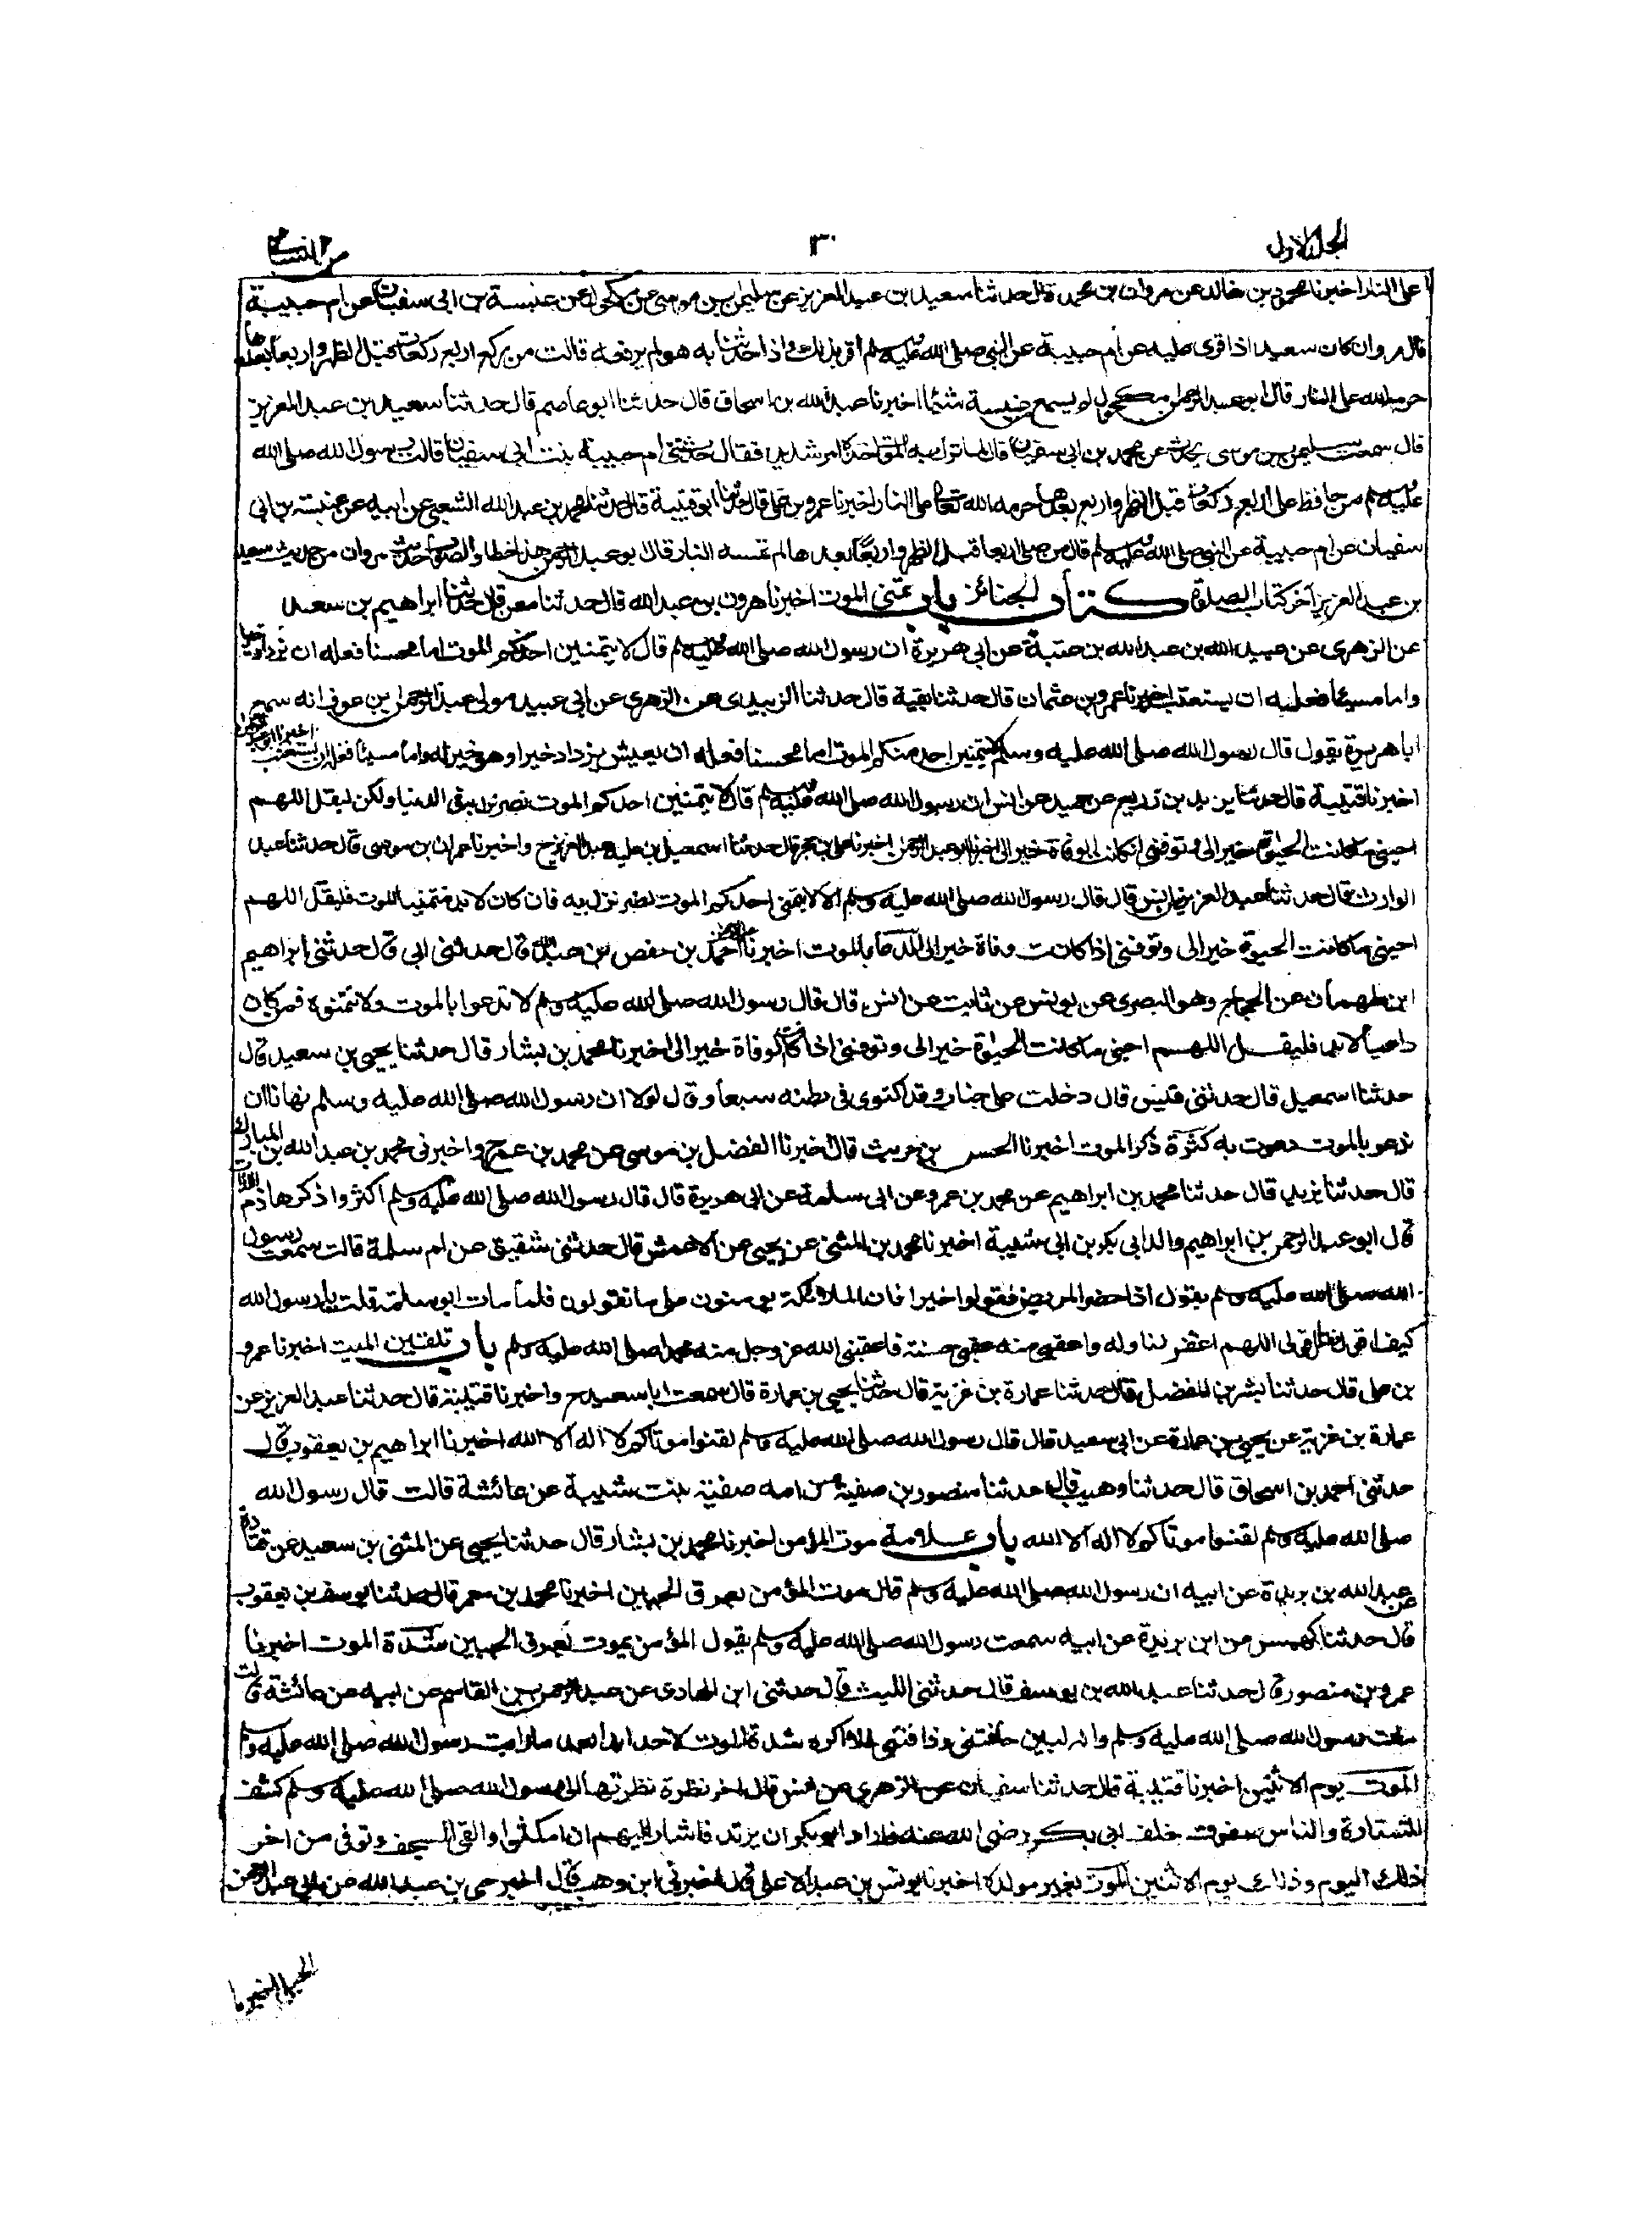 الجلد الاول ٣٠ من النسائي
على النار اخبرنا محمود بن خالد عن مروان بن محمد قال حدثنا سعيد بن عبد العزيز عن سليمن بن موسى عن مكحول عن عنبسة بن ابى سفيان عن ام حبيبة
قال مروان كان سعيد اذا قرئ عليه عن ام حبيبة عن النبى صلى الله عليه وسلم اقر بذلك واذا حدثنا به هو لم يرفعه قالت من ركع اربع ركعات قبل الظهر واربعا بعدها
حرمه الله على النار قال ابو عبد الرحمن مكحول لم يسمع من عنبسة شيئا اخبرنا عبد الله بن اسحاق قال حدثنا ابو عاصم قال حدثنا سعيد بن عبد العزيز
قال سمعت سليمن بن موسى يحدث عن محمد بن ابى سفين قال لما نزل به الموت اخذه امر شديد فقال حدثتنى ام حبيبة بنت ابى سفيان قالت رسول الله صلى الله
عليه وسلم من حافظ على اربع ركعات قبل الظهر واربع بعدها حرمه الله تعالى على النار اخبرنا عمرو بن على قال حدثنا ابو قتيبة قال حدثنا محمد بن عبد الله الشعيثى عن ابيه عن عنبسة بن ابى
سفيان عن ام حبيبة عن النبى صلى الله عليه وسلم قال من صلى اربعا قبل الظهر واربعا بعدها لم تمسه النار قال ابو عبد الرحمن هذا خطا والصواب حديث مروان من حديث سعيد
بن عبد العزيز آخر كتاب الصلوة كتاب الجنائز باب تمنى الموت اخبرنا هرون بن عبد الله قال حدثنا معن قال حدثنا ابراهيم بن سعد
عن الزهرى عن عبيد الله بن عبد الله بن عتبة عن ابى هريرة ان رسول الله صلى الله عليه وسلم قال لا يتمنين احد منكم الموت اما محسنا فعله ان يزداد خيرا
واما مسيئا فعله ان يستعتب اخبرنا عمرو بن عثمان قال حدثنا بقية قال حدثنا الزبيدى عن الزهرى عن ابى عبيد مولى عبد الرحمن بن عوف انه سمع
ابا هريرة يقول قال رسول الله صلى الله عليه وسلم لا يتمنين احد منكم الموت اما محسنا فعله ان يعيش يزداد خيرا وهو خير له واما مسيئا فعله ان يستعتب
اخبرنا قتيبة قال حدثنا يزيد بن زريع عن حميد عن انس ان رسول الله صلى الله عليه وسلم قال لا يتمنين احدكم الموت لضر نزل به فى الدنيا ولكن ليقل اللهم
احينى ما كانت الحيوة خيرا لى وتوفنى اذا كانت الوفاة خيرا لى اخبرنا ابو عبد الرحمن اخبرنا على بن حجر قال حدثنا اسمعيل بن علية عن عبد العزيز ح واخبرنا عمران بن موسى قال حدثنا عبد
الوارث قال حدثنا عبد العزيز عن انس قال قال رسول الله صلى الله عليه وسلم الا لا يتمنى احدكم الموت لضر نزل به فان كان لا بد متمنيا الموت فليقل اللهم
احينى ما كانت الحيوة خيرا لى وتوفنى اذا كانت وفاة خيرا لى الدعا بالموت اخبرنا احمد بن حفص بن عبد الله قال حدثنى ابى قال حدثنى ابراهيم
ابن طهمان عن الحجاج وهو البصرى عن يونس عن ثابت عن انس قال قال رسول الله صلى الله عليه وسلم لا تدعوا بالموت ولا تتمنوه فمن كان
داعيا لا بد فليقل اللهم احينى ما كانت الحيوة خيرا لى وتوفنى اذا كانت الوفاة خيرا لى اخبرنا محمد بن بشار قال حدثنا يحيى بن سعيد قال
حدثنا اسمعيل قال حدثنى قيس قال دخلت على خباب وقد اكتوى فى بطنه سبعا وقال لولا ان رسول الله صلى الله عليه وسلم نهانا ان
ندعو بالموت دعوت به كثرة ذكر الموت اخبرنا الحسين بن حريث قال اخبرنا الفضل بن موسى عن محمد بن عمرو ح واخبرنى محمد بن عبد الله بن المبارك
قال حدثنا يزيد قال حدثنا محمد بن ابراهيم عن محمد بن عمرو عن ابى سلمة عن ابى هريرة قال قال رسول الله صلى الله عليه وسلم اكثروا ذكر هاذم اللذات
قال ابو عبد الرحمن محمد بن ابراهيم والد ابى بكر بن ابى شيبة اخبرنا محمد بن المثنى عن يحيى عن الاعمش قال حدثنى شقيق عن ام سلمة قالت سمعت رسول
الله صلى الله عليه وسلم يقول اذا حضرتم المريض فقولوا خيرا فان الملائكة يومنون على ما تقولون فلما مات ابو سلمة قلت يا رسول الله
كيف اقول قال قولى اللهم اغفر لنا وله واعقبنى منه عقبى حسنة فاعقبنى الله عز وجل منه محمدا صلى الله عليه وسلم باب تلقين الميت اخبرنا عمرو
بن على قال حدثنا بشر بن المفضل قال حدثنا عمارة بن غزية قال حدثنا يحيى بن عمارة قال سمعت ابا سعيد ح واخبرنا قتيبة قال حدثنا عبد العزيز عن
عمارة بن غزية عن يحيى بن عمارة عن ابى سعيد قال قال رسول الله صلى الله عليه وسلم لقنوا موتاكم لا اله الا الله اخبرنا ابراهيم بن يعقوب قال
حدثنى احمد بن اسحاق قال حدثنا وهيب قال حدثنا منصور بن صفية عن امه صفية بنت شيبة عن عائشة قالت قال رسول الله
صلى الله عليه وسلم لقنوا موتاكم لا اله الا الله باب علامة موت المؤمن اخبرنا محمد بن بشار قال حدثنا يحيى عن المثنى بن سعيد عن قتادة
عن عبد الله بن بريدة عن ابيه ان رسول الله صلى الله عليه وسلم قال موت المؤمن بعرق الجبين اخبرنا محمد بن معمر قال حدثنا يوسف بن يعقوب
قال حدثنا كهمس عن ابن بريدة عن ابيه سمعت رسول الله صلى الله عليه وسلم يقول المؤمن يموت بعرق الجبين شدة الموت اخبرنا
عمرو بن منصور قال حدثنا عبد الله بن يوسف قال حدثنى الليث قال حدثنى ابن الهادى عن عبد الرحمن بن القاسم عن ابيه عن عائشة قالت
مات رسول الله صلى الله عليه وسلم وانه لبين حاقنتى وذاقنتى فلا اكره شدة الموت لاحد ابدا بعد ما رايت رسول الله صلى الله عليه وسلم
الموت يوم الاثنين اخبرنا قتيبة قال حدثنا سفيان عن الزهرى عن انس قال اخر نظرة نظرتها الى رسول الله صلى الله عليه وسلم كشف
الستارة والناس صفوف خلف ابى بكر رضى الله عنه فاراد ابو بكر ان يرتد فاشار اليهم ان امكثوا والقى السجف وتوفى من اخر
ذلك اليوم وذلك يوم الاثنين الموت بغير مولده اخبرنا يونس بن عبد الاعلى قال اخبرنى ابن وهب قال اخبرنى حيى بن عبد الله عن ابى عبد الرحمن